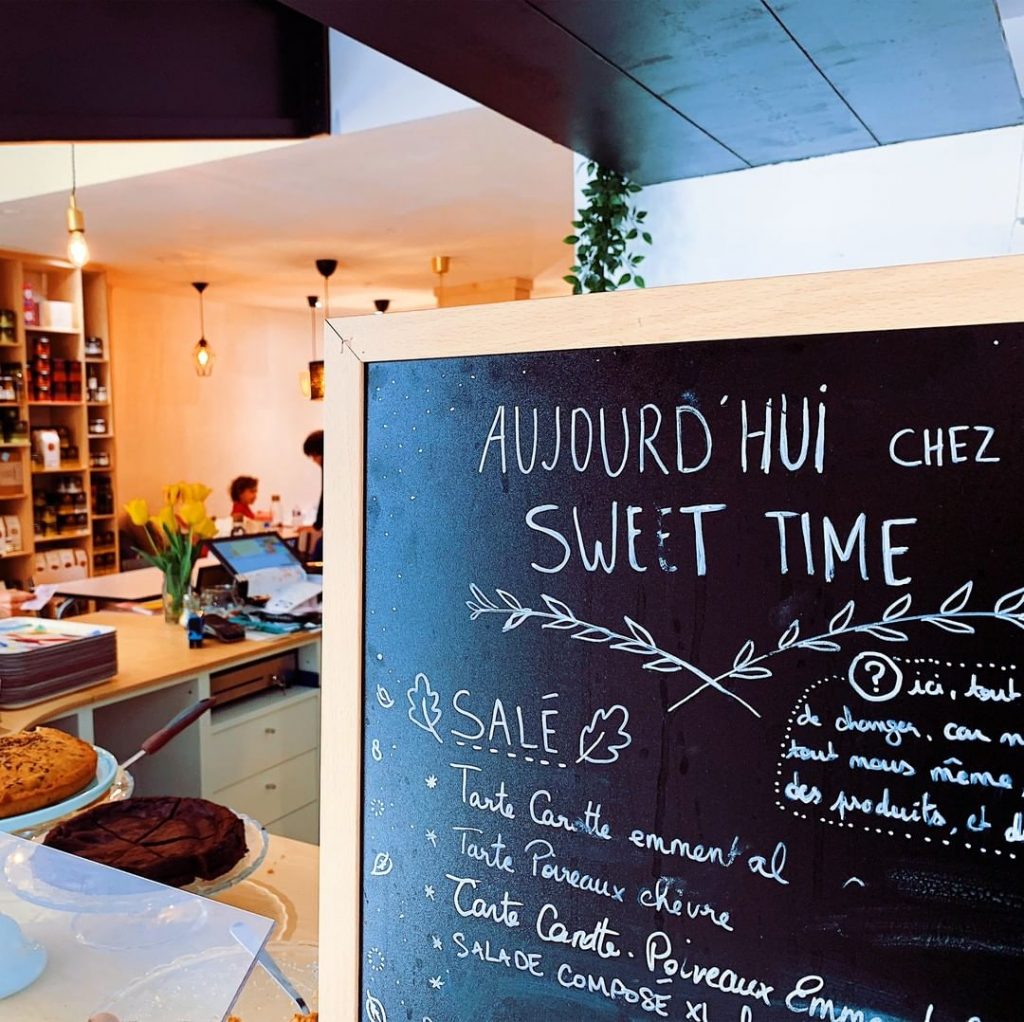 AUJOURD'HUI CHEZ
SWEET TIME
SALÉ
Tarte Carotte emmental
Tarte Poireaux chèvre
Tarte Carotte. Poireaux Emm
SALADE COMPOSÉ XL
? ici, tout
de changer, car n
tout nous même,
des produits, et d